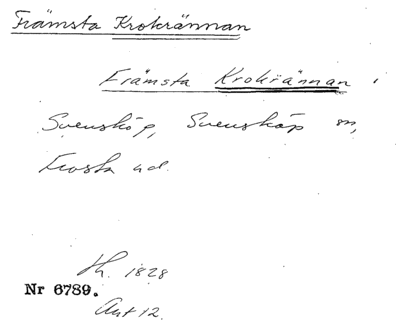 Främsta Krokrännan
Främsta Krokrännan i
Svensköp, Svensköp sn,
Frosta hd.
Lh. 1828
Nr 6789.
Akt 12.